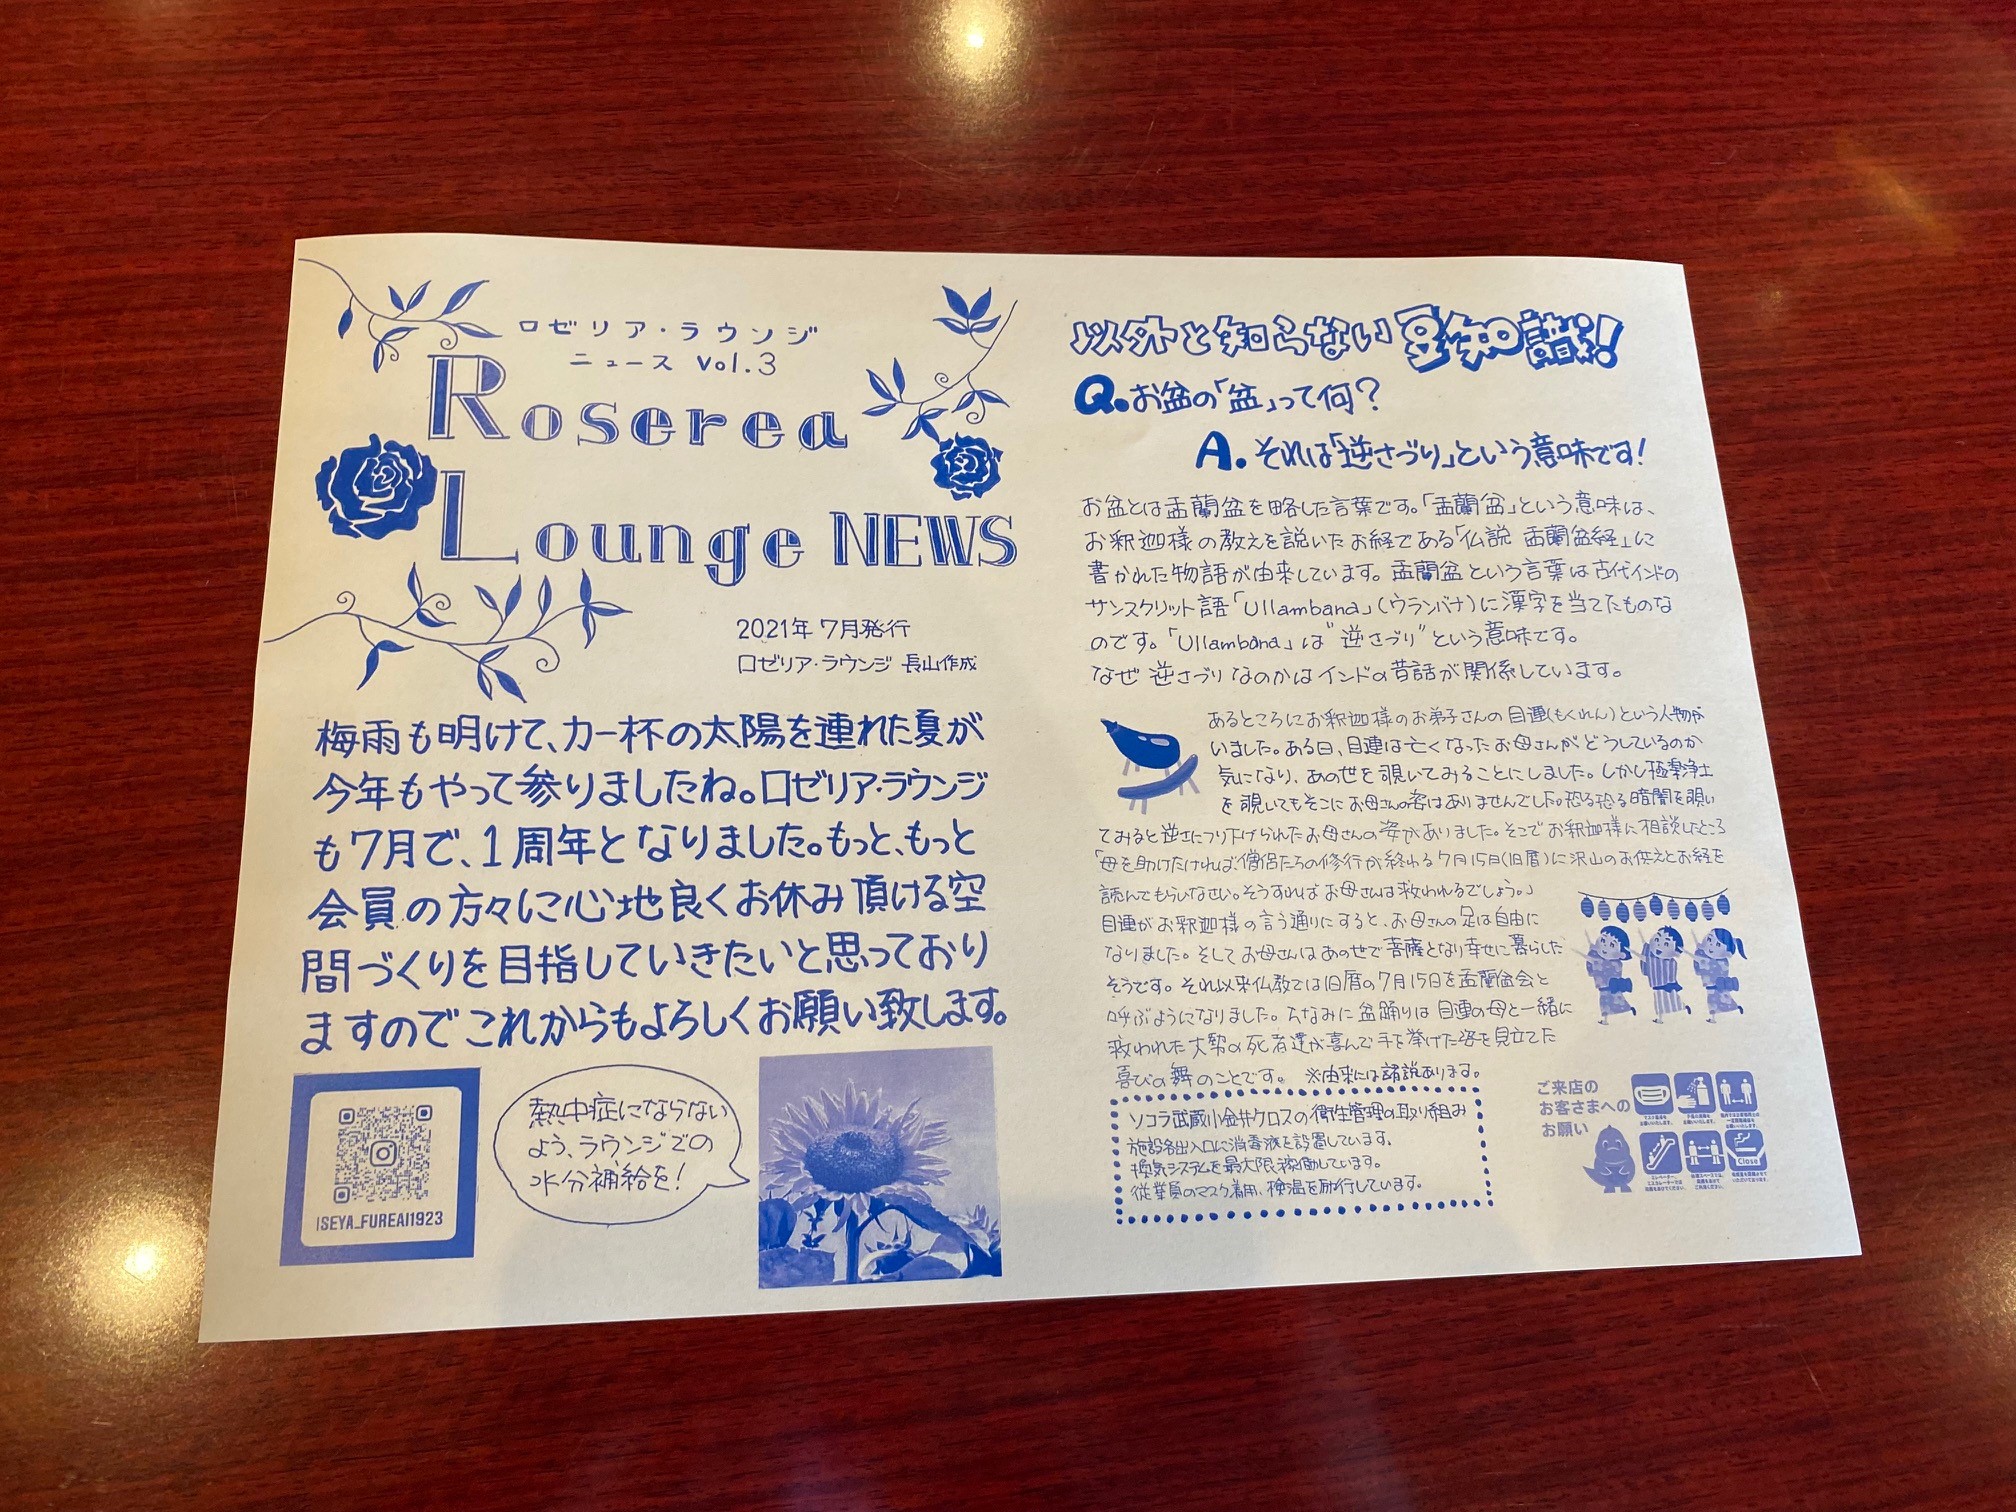 ロゼリア・ラウンジ
ニュース vol.3
Roserea
Lounge NEWS
2021年 7月発行
ロゼリア・ラウンジ 長山作成
梅雨も明けて、力一杯の太陽を連れた夏が
今年もやって参りましたね。ロゼリア・ラウンジ
も7月で、1周年となりました。もっと、もっと
会員の方々に心地良くお休み頂ける空
間づくりを目指していきたいと思っており
ますのでこれからもよろしくお願い致します。
ISEYA_FUREAI1923
熱中症にならない
よう、ラウンジでの
水分補給を!
以外と知らない豆知識!
Q.お盆の「盆」って何?
A.それは「逆さづり」という意味です!
お盆とは盂蘭盆を略した言葉です。「盂蘭盆」という意味は、
お釈迦様の教えを説いたお経である「仏説 盂蘭盆経」に
書かれた物語が由来しています。盂蘭盆という言葉は古代インドの
サンスクリット語「Ullambana」(ウランバナ)に漢字を当てたものな
のです。「Ullambana」は"逆さづり"という意味です。
なぜ 逆さづり なのかは インドの昔話が関係しています。
あるところにお釈迦様のお弟子さんの 目連(もくれん)という人物が
いました。ある日、目連は亡くなったお母さんがどうしているのか
気になり、あの世を覗いてみることにしました。しかし極楽浄土
を覗いてもそこにお母さんの姿はありませんでした。恐る恐る暗闇を覗い
てみると逆さにつり下げられたお母さんの姿がありました。そこでお釈迦様に相談したところ
「母を助けたければ、僧侶たちの修行が終わる7月15日(旧暦)に沢山のお供えとお経を
読んでもらいなさい。そうすればお母さんは救われるでしょう。」
目連がお釈迦様の言う通りにすると、お母さんの足は自由に
なりました。そしてお母さんはあの世で菩薩となり幸せに暮らした
そうです。それ以来仏教では旧暦の7月15日を盂蘭盆会と
呼ぶようになりました。ちなみに盆踊りは目連の母と一緒に
救われた大勢の死者達が喜んで手を挙げた姿を見立てた
喜びの舞のことです。 ※由来には諸説あります。
ソコラ武蔵小金井クロスの衛生管理の取り組み
施設各出入口に消毒液を設置しています。
換気システムを最大限稼働しています。
従業員のマスク着用、検温を励行しています。
ご来店の
お客さまへの
お願い
Close